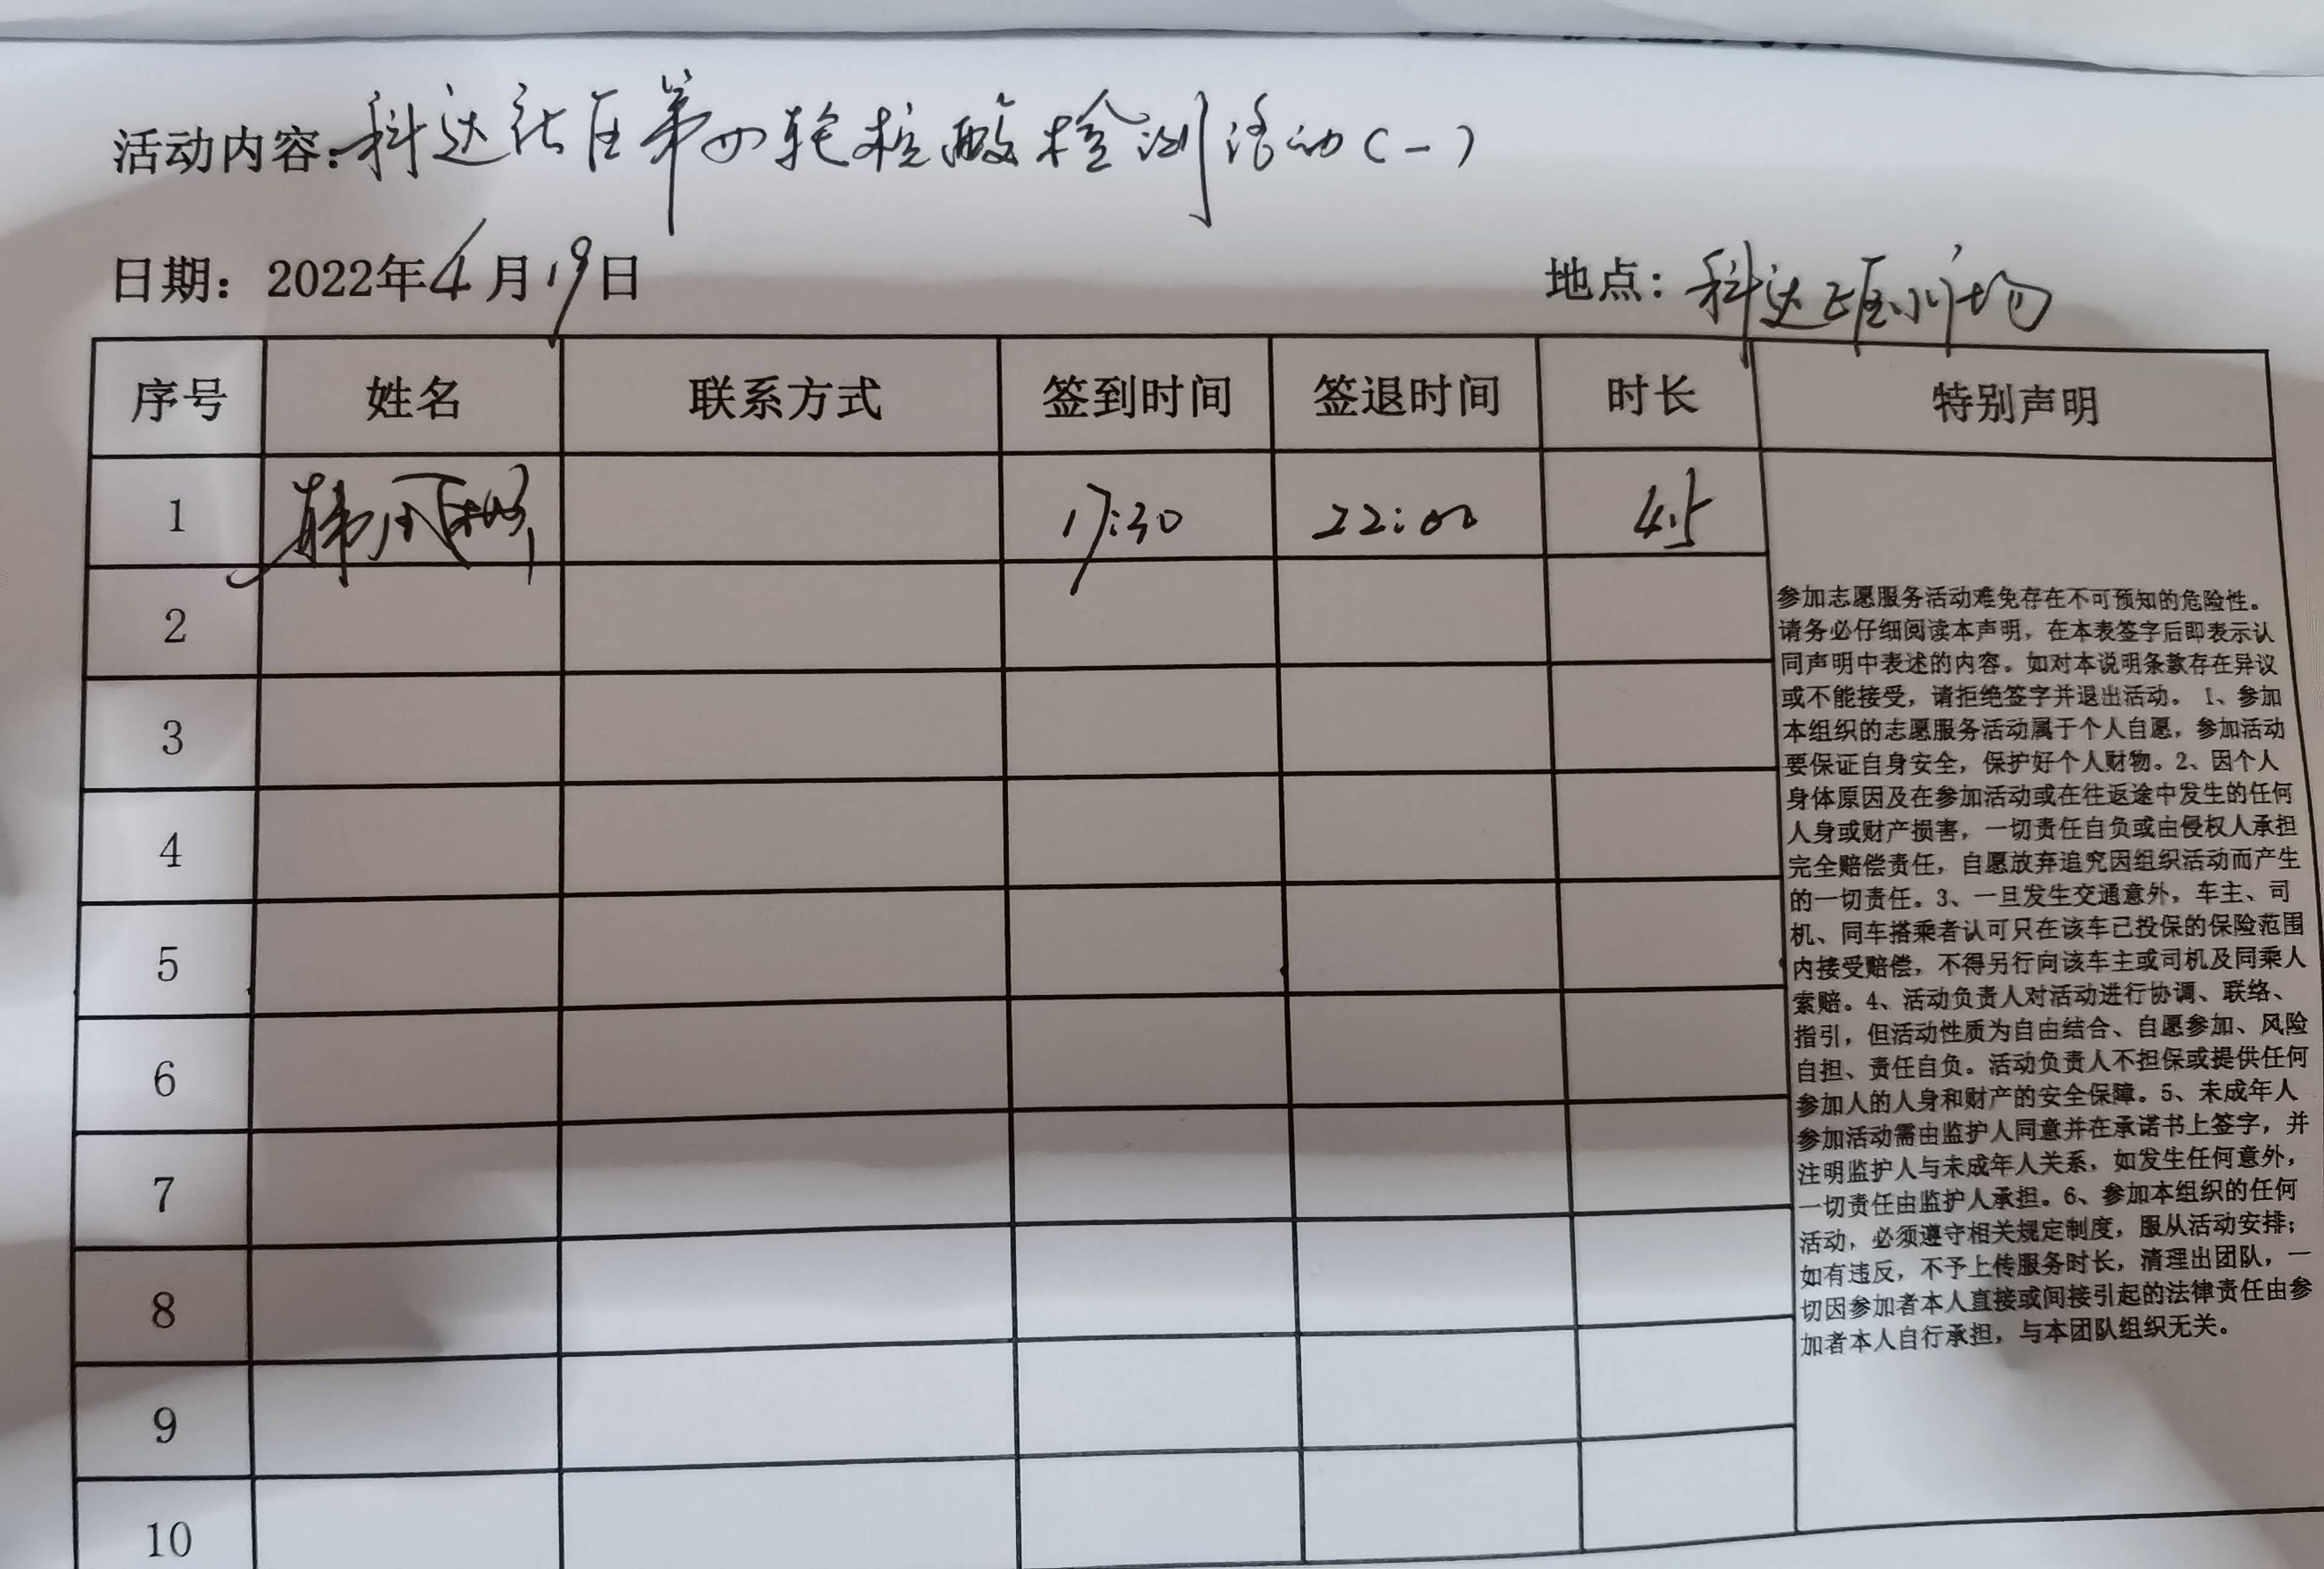 活动内容:科达社区第四轮核酸检测活动(一)
日期：2022年4月19日
地点：科达
序号 姓名 联系方式 签到时间 签退时间 时长 特别声明
1 韩 17:30 22:00 4.5
2
3
4
5
6
7
8
9
10
参加志愿服务活动难免存在不可预知的危险性。
请务必仔细阅读本声明，在本表签字后即表示认
同声明中表述的内容。如对本说明条款存在异议
或不能接受，请拒绝签字并退出活动。1、参加
本组织的志愿服务活动属于个人自愿，参加活动
要保证自身安全，保护好个人财物。2、因个人
身体原因及在参加活动或在往返途中发生的任何
人身或财产损害，一切责任自负或由侵权人承担
完全赔偿责任，自愿放弃追究因组织活动而产生
的一切责任。3、一旦发生交通意外，车主、司
机、同车搭乘者认可只在该车已投保的保险范围
内接受赔偿，不得另行向该车主或司机及同乘人
索赔。4、活动负责人对活动进行协调、联络、
指引，但活动性质为自由结合、自愿参加、风险
自担、责任自负。活动负责人不担保或提供任何
参加人的人身和财产的安全保障。5、未成年人
参加活动需由监护人同意并在承诺书上签字，并
注明监护人与未成年人关系，如发生任何意外，
一切责任由监护人承担。6、参加本组织的任何
活动，必须遵守相关规定制度，服从活动安排；
如有违反，不予上传服务时长，清理出团队，一
切因参加者本人直接或间接引起的法律责任由参
加者本人自行承担，与本团队组织无关。